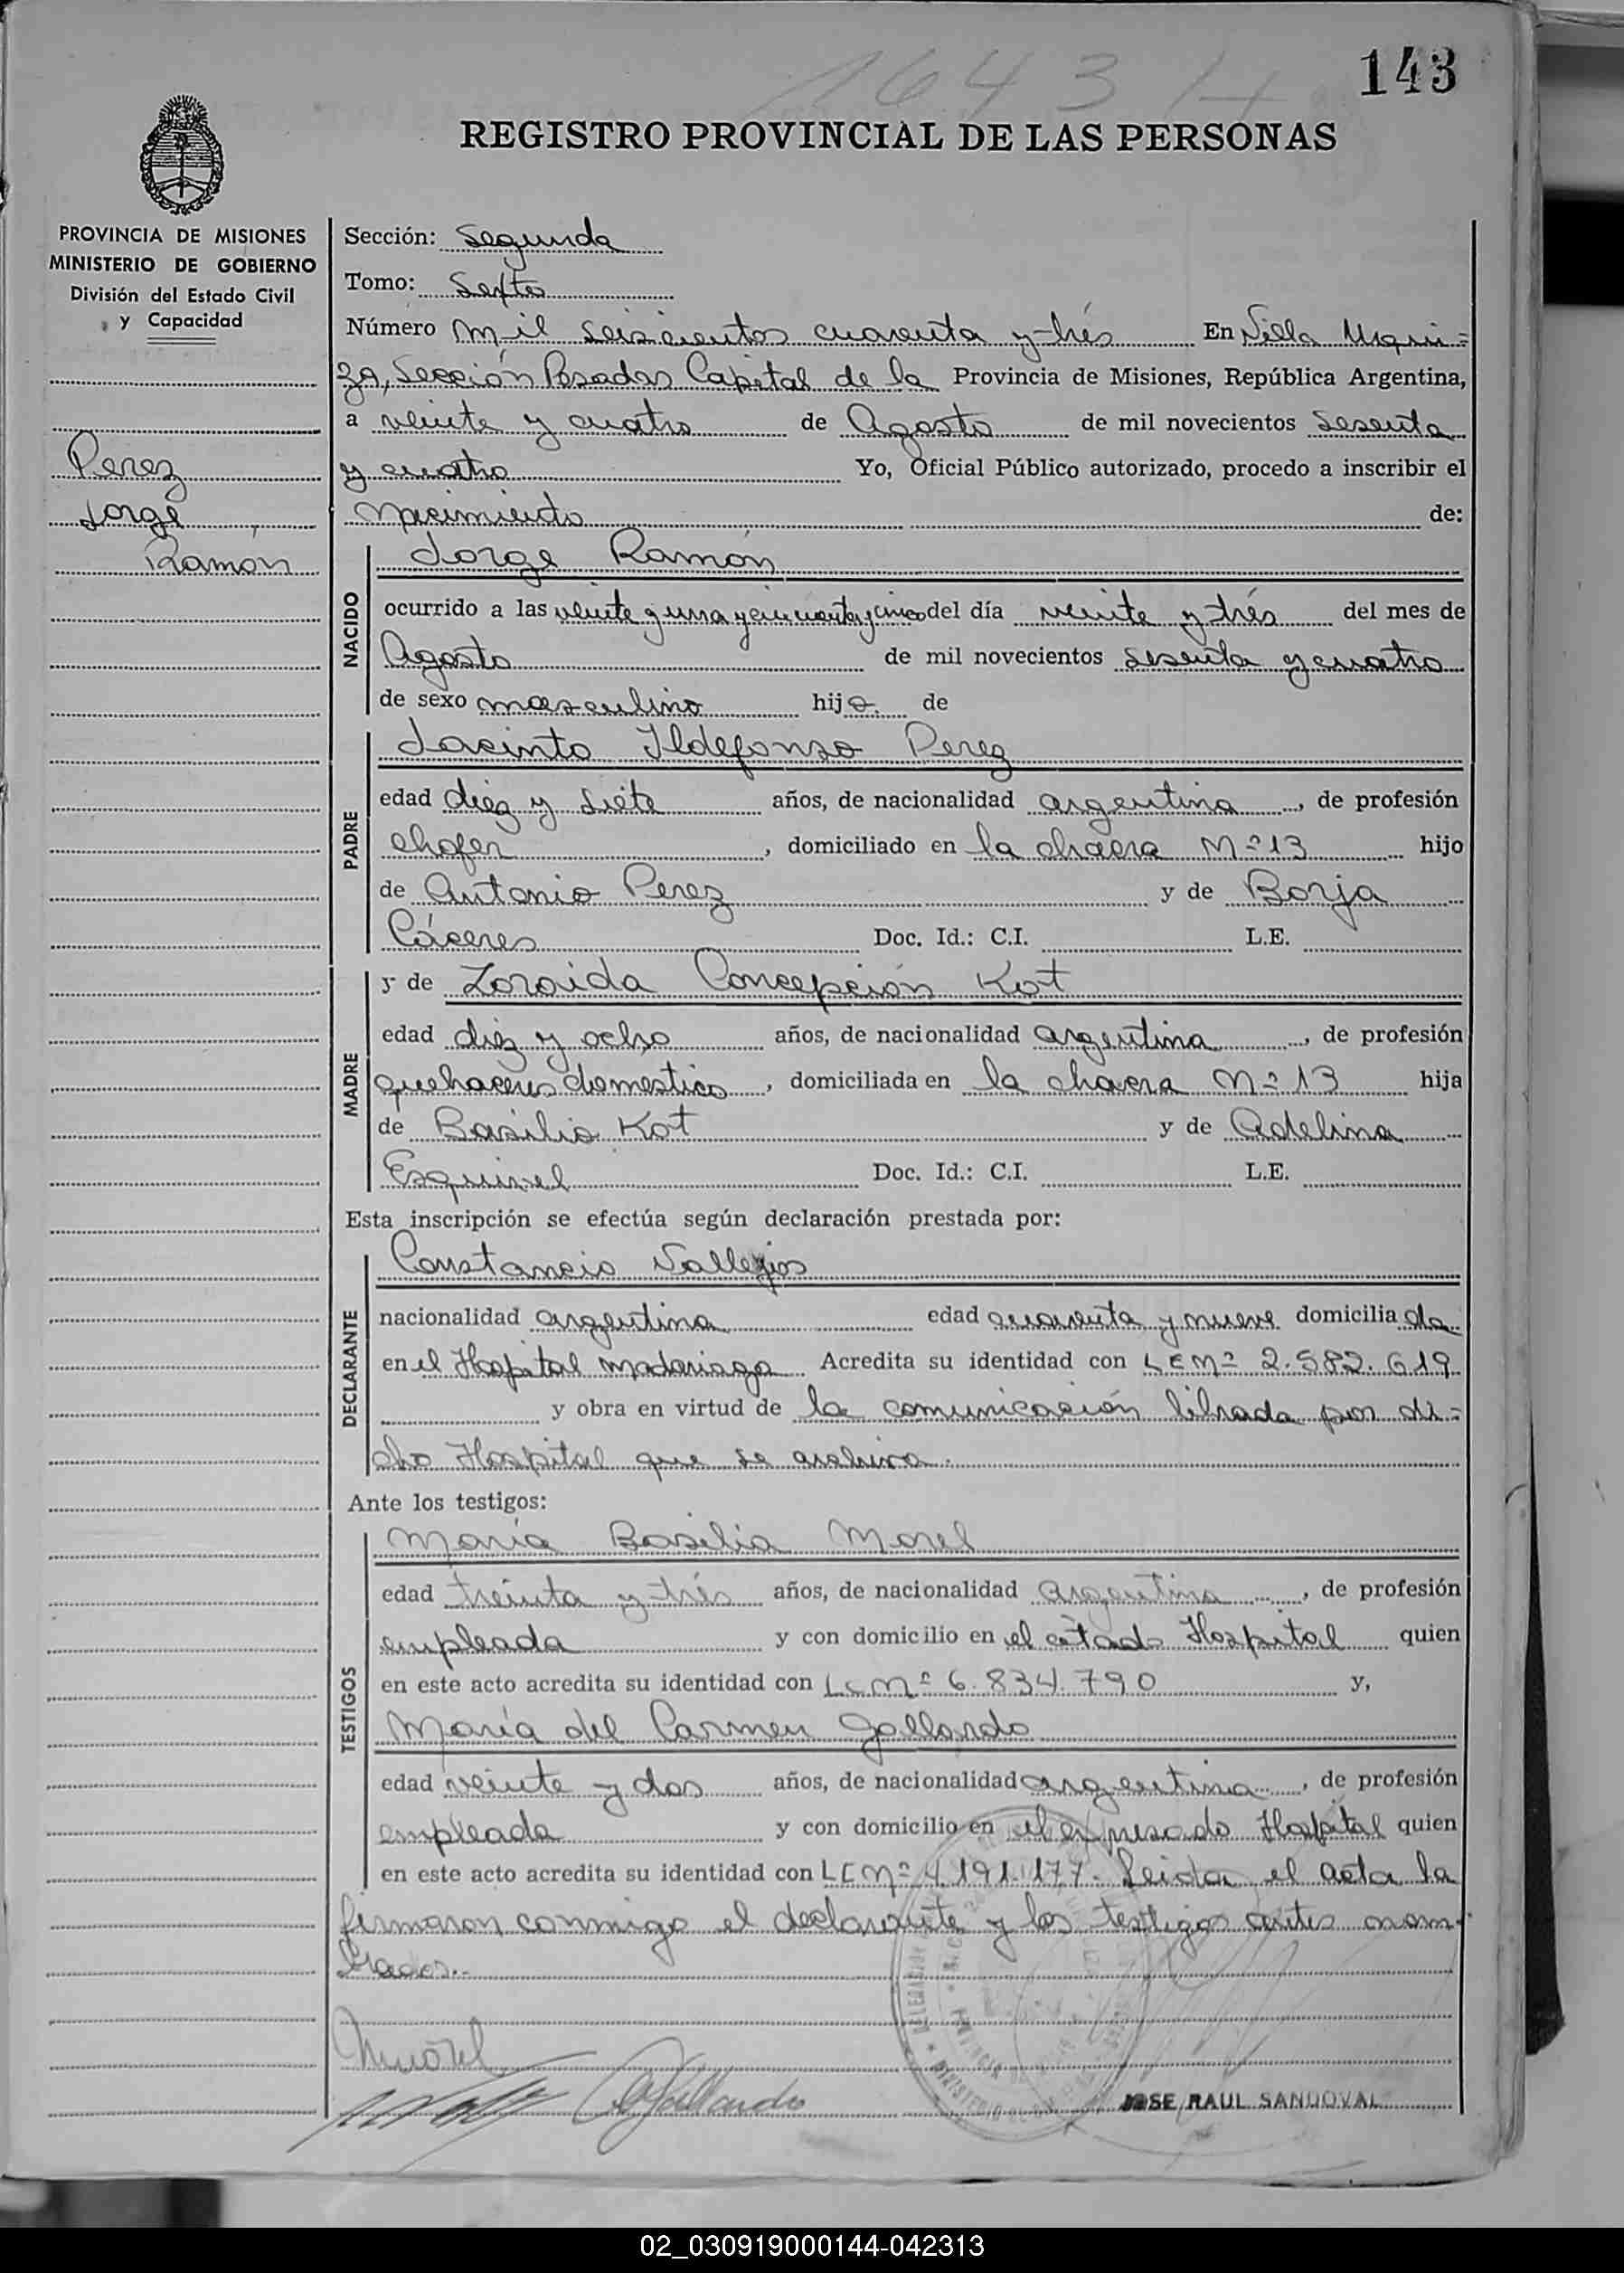 1643 H
143
REGISTRO PROVINCIAL DE LAS PERSONAS
PROVINCIA DE MISIONES
MINISTERIO DE GOBIERNO
División del Estado Civil
y Capacidad
Perez
Jorge
Ramón
Sección: Segunda
Tomo: Sexto
Número mil seiscientos cuarenta y trés En Villa Urqui=
za, Sección Posadas Capital de la Provincia de Misiones, República Argentina,
a veinte y cuatro de Agosto de mil novecientos Sesenta
y cuatro Yo, Oficial Público autorizado, procedo a inscribir el
Nacimiento de:
NACIDO
Jorge Ramón
ocurrido a las veinte y una y cincuenta y cinco del día veinte y trés del mes de
Agosto de mil novecientos sesenta y cuatro
de sexo masculino hijo de
PADRE
Jacinto Ildefonso Perez
edad diez y siete años, de nacionalidad argentina, de profesión
chofer, domiciliado en la chacra Nº 13 hijo
de Antonio Perez y de Borja
Cáceres Doc. Id.: C.I. L.E.
MADRE
y de Zoraida Concepción Kot
edad diez y ocho años, de nacionalidad argentina, de profesión
quehaceres domestico, domiciliada en la chacra Nº 13 hija
de Basilio Kot y de Adelina
Esquivel Doc. Id.: C.I. L.E.
Esta inscripción se efectúa según declaración prestada por:
DECLARANTE
Constancio Vallejos
nacionalidad argentina edad cuarenta y nueve domicilia da
en el Hospital Madariaga Acredita su identidad con LE Nº 2.582.619
y obra en virtud de la comunicación librada por di=
cho Hospital que se archiva.
Ante los testigos:
TESTIGOS
María Basilia Morel
edad treinta y trés años, de nacionalidad argentina, de profesión
empleada y con domicilio en el citado Hospital quien
en este acto acredita su identidad con LC Nº 6.834.790 y,
María del Carmen Gallardo
edad veinte y dos años, de nacionalidad argentina, de profesión
empleada y con domicilio en el expresado Hospital quien
en este acto acredita su identidad con LC Nº 4.191.177. Leida el acta la
firmaron conmigo el declarante y los testigos antes nom-
brados.
Morel
Gallardo
JOSE RAUL SANDOVAL
02_030919000144-042313